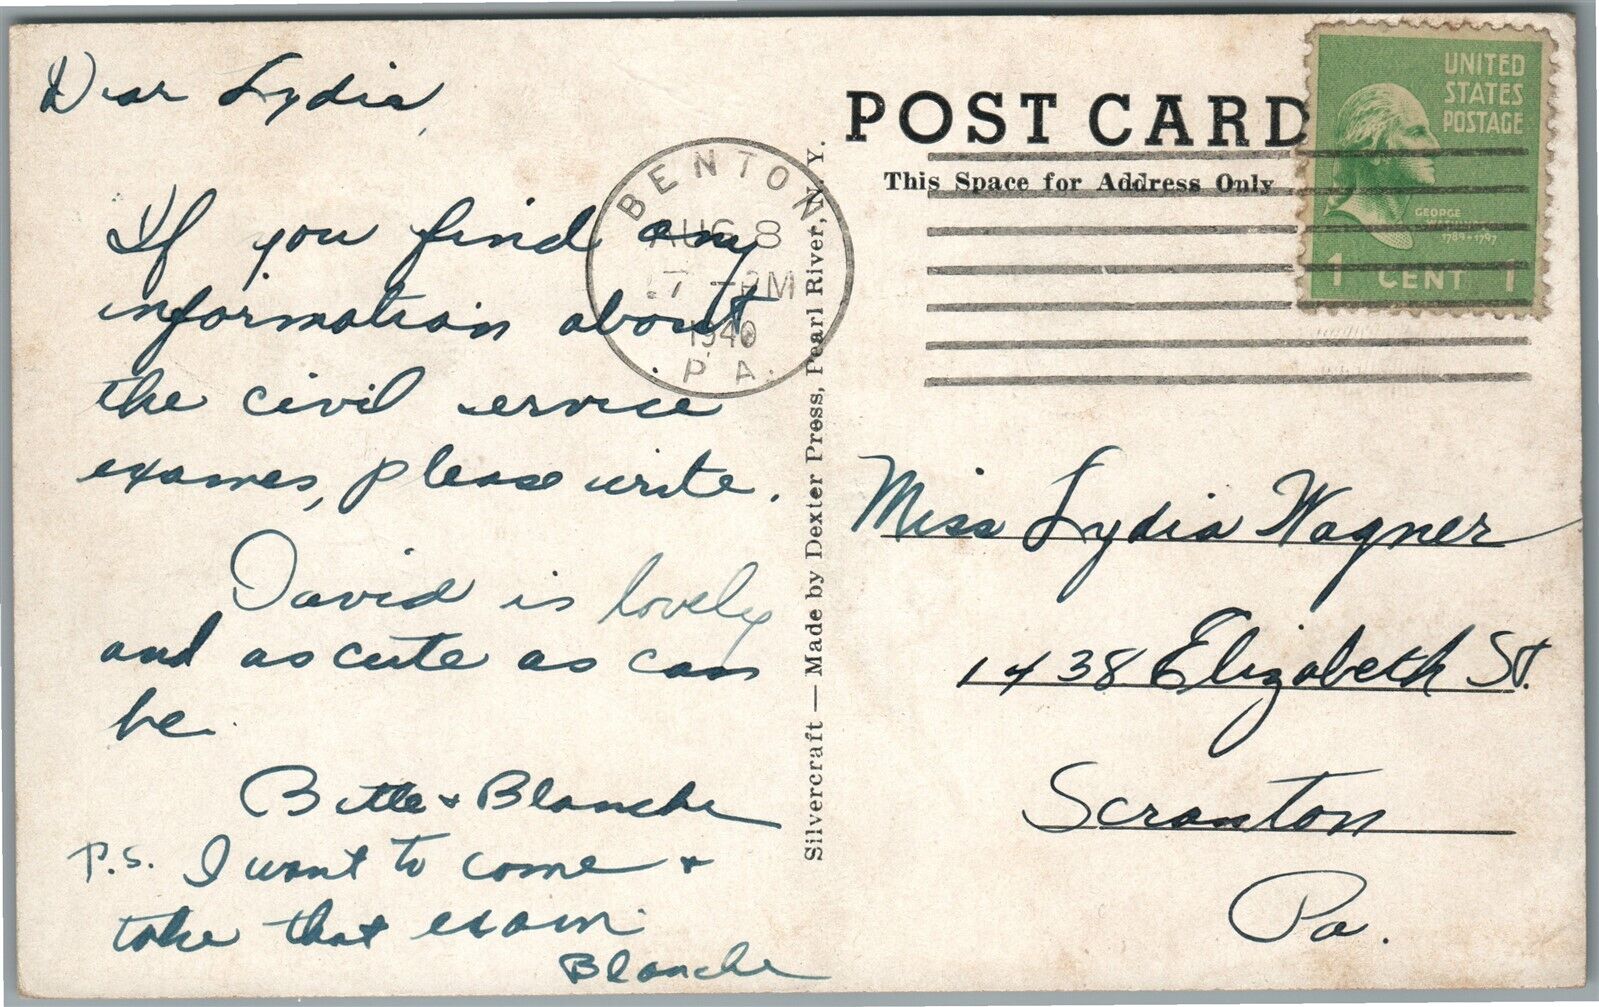 Dear Lydia,
If you find any
information about
the civil service
exames, please write.
David is lovely
and as cute as can
be.
Bette + Blanche
P.S. I want to come +
take that exam.
Blanche
BENTON
AUG 8
7 - PM
1940
P A.
Silvercraft — Made by Dexter Press, Pearl River, N. Y.
POST CARD
This Space for Address Only
UNITED
STATES
POSTAGE
GEORGE
WASHINGTON
1789-1797
1 CENT 1
Miss Lydia Wagner
1438 Elizabeth St.
Scranton
Pa.